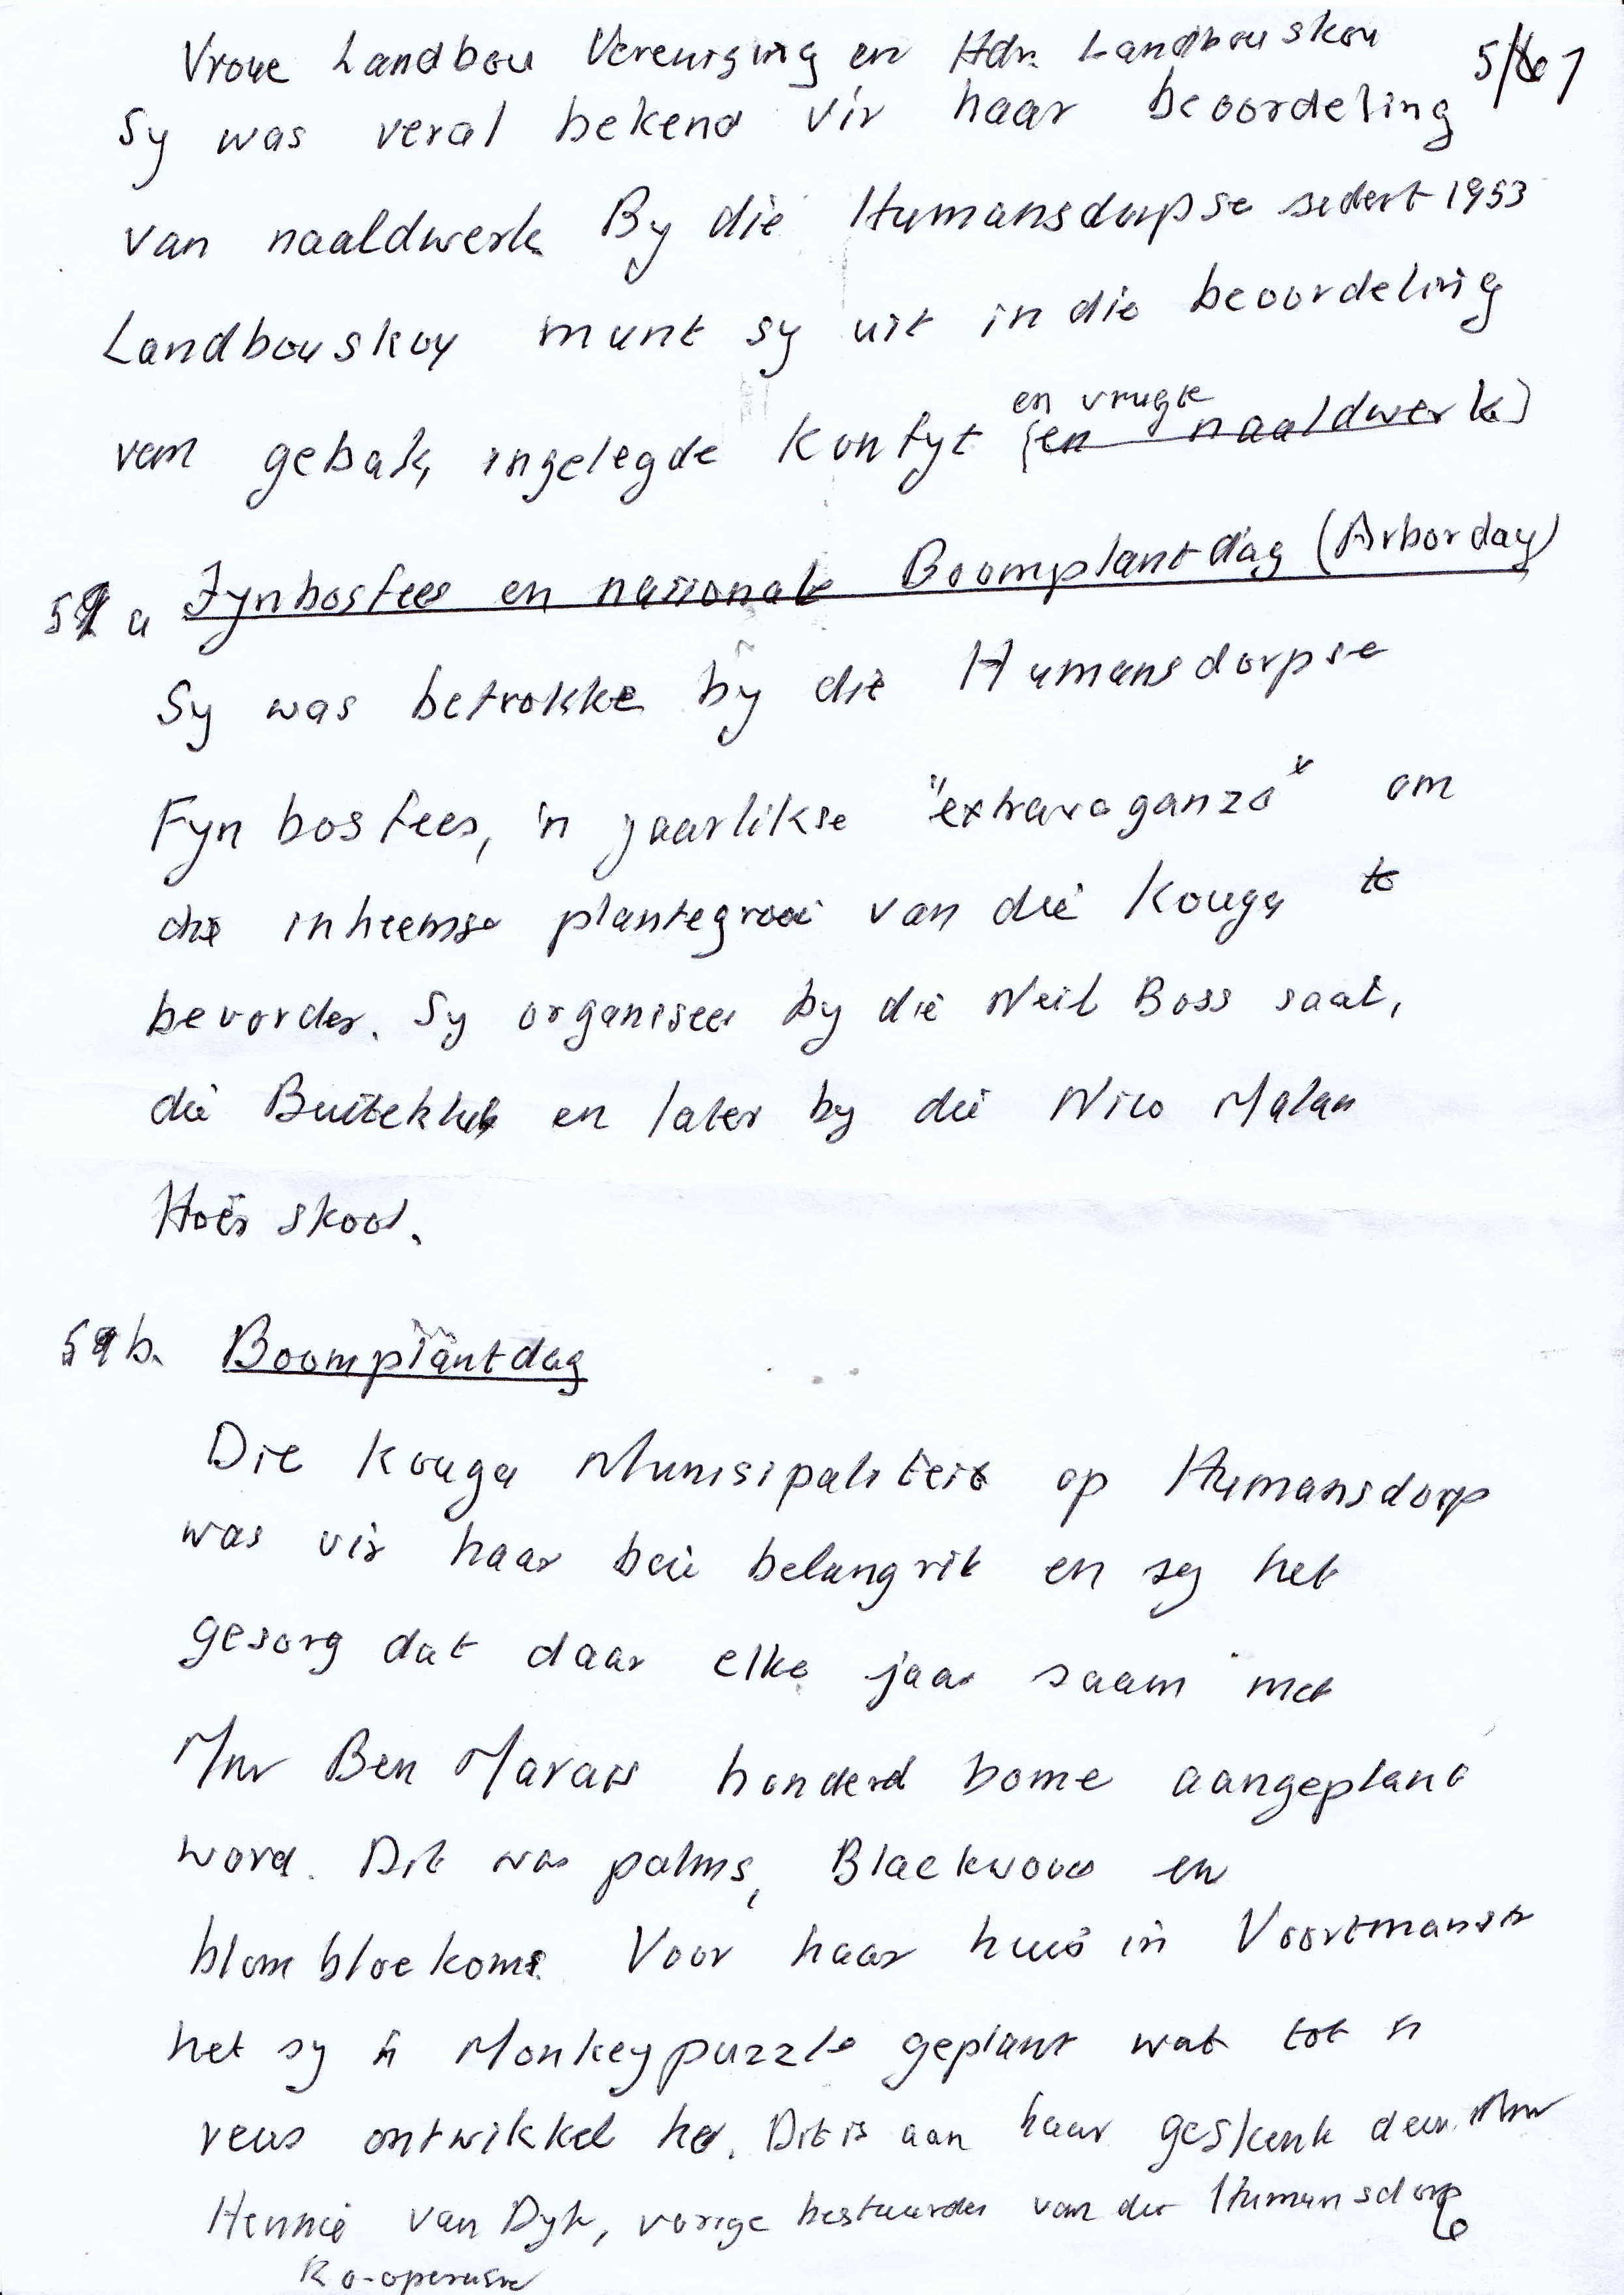 Vroue Landbou Vereniging en Hdn. Landbouskou
Sy was veral bekend vir haar beoordeling
van naaldwerk By die Humansdorpse sedert 1953
Landbouskou munt sy uit in die beoordeling
en vrugte
van gebak, ingelegde konfyt (en naaldwerk)
a Fynbosfees en nasionale Boomplantdag (Arborday)
Sy was betrokke by die Humansdorpse
Fynbosfees, 'n jaarlikse "extravaganza" om
die inheemse plantegroei van die Kouga te
bevorder. Sy organiseer by die Neil Boss saal,
die Buiteklub en later by die Nico Malan
Hoër skool.
59b. Boomplantdag
Die Kouga Munisipaliteit op Humansdorp
was vir haar baie belangrik en sy het
gesorg dat daar elke jaar saam met
Mnr Ben Marais honderd bome aangeplant
word. Dit was palms, Blackwood en
blom bloekoms. Voor haar huis in Voortmanstr
het sy 'n Monkeypuzzle geplant wat tot 'n
reus ontwikkel het. Dit is aan haar geskenk deur Mnr
Hennie van Dyk, vorige bestuurder van die Humansdorp
Ko-operasie